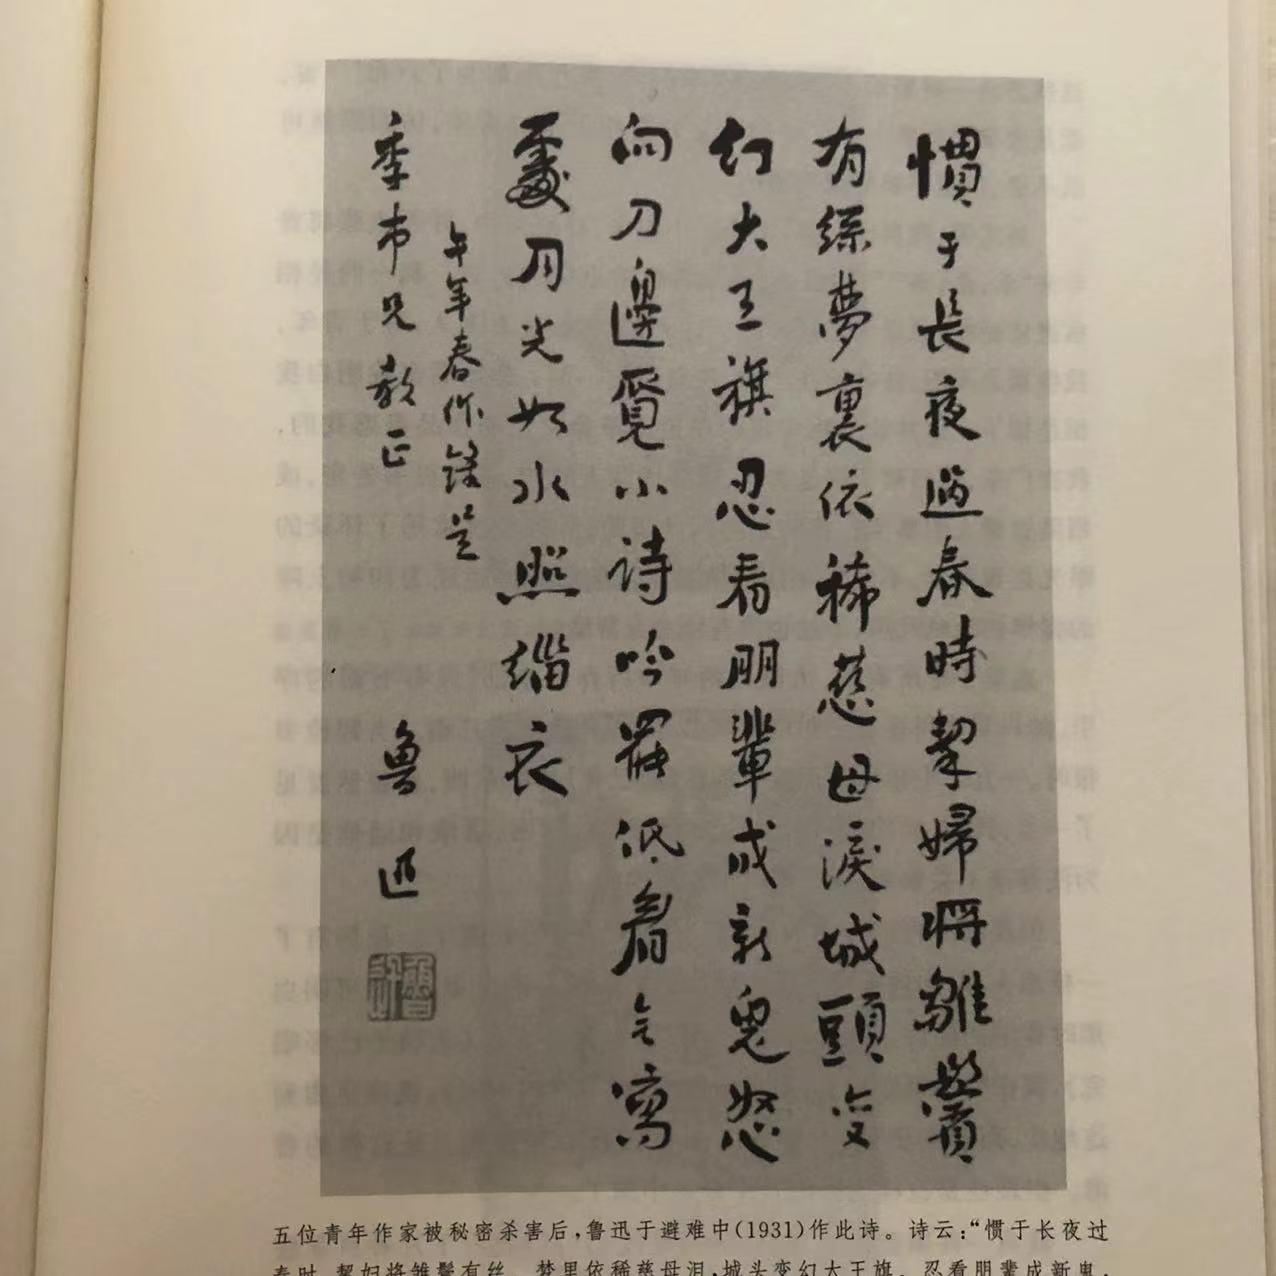 慣于長夜過春時挈婦將雛鬢
有絲夢裏依稀慈母淚城頭变
幻大王旗忍看朋輩成新鬼怒
向刀邊覓小詩吟罷低眉无寫
處月光如水照緇衣
午年春作錄呈
季市兄教正 魯迅
五位青年作家被秘密杀害后，鲁迅于避难中(1931)作此诗。诗云：“惯于长夜过
春时，挈妇将雏鬓有丝。梦里依稀慈母泪，城头变幻大王旗。忍看朋辈成新鬼，